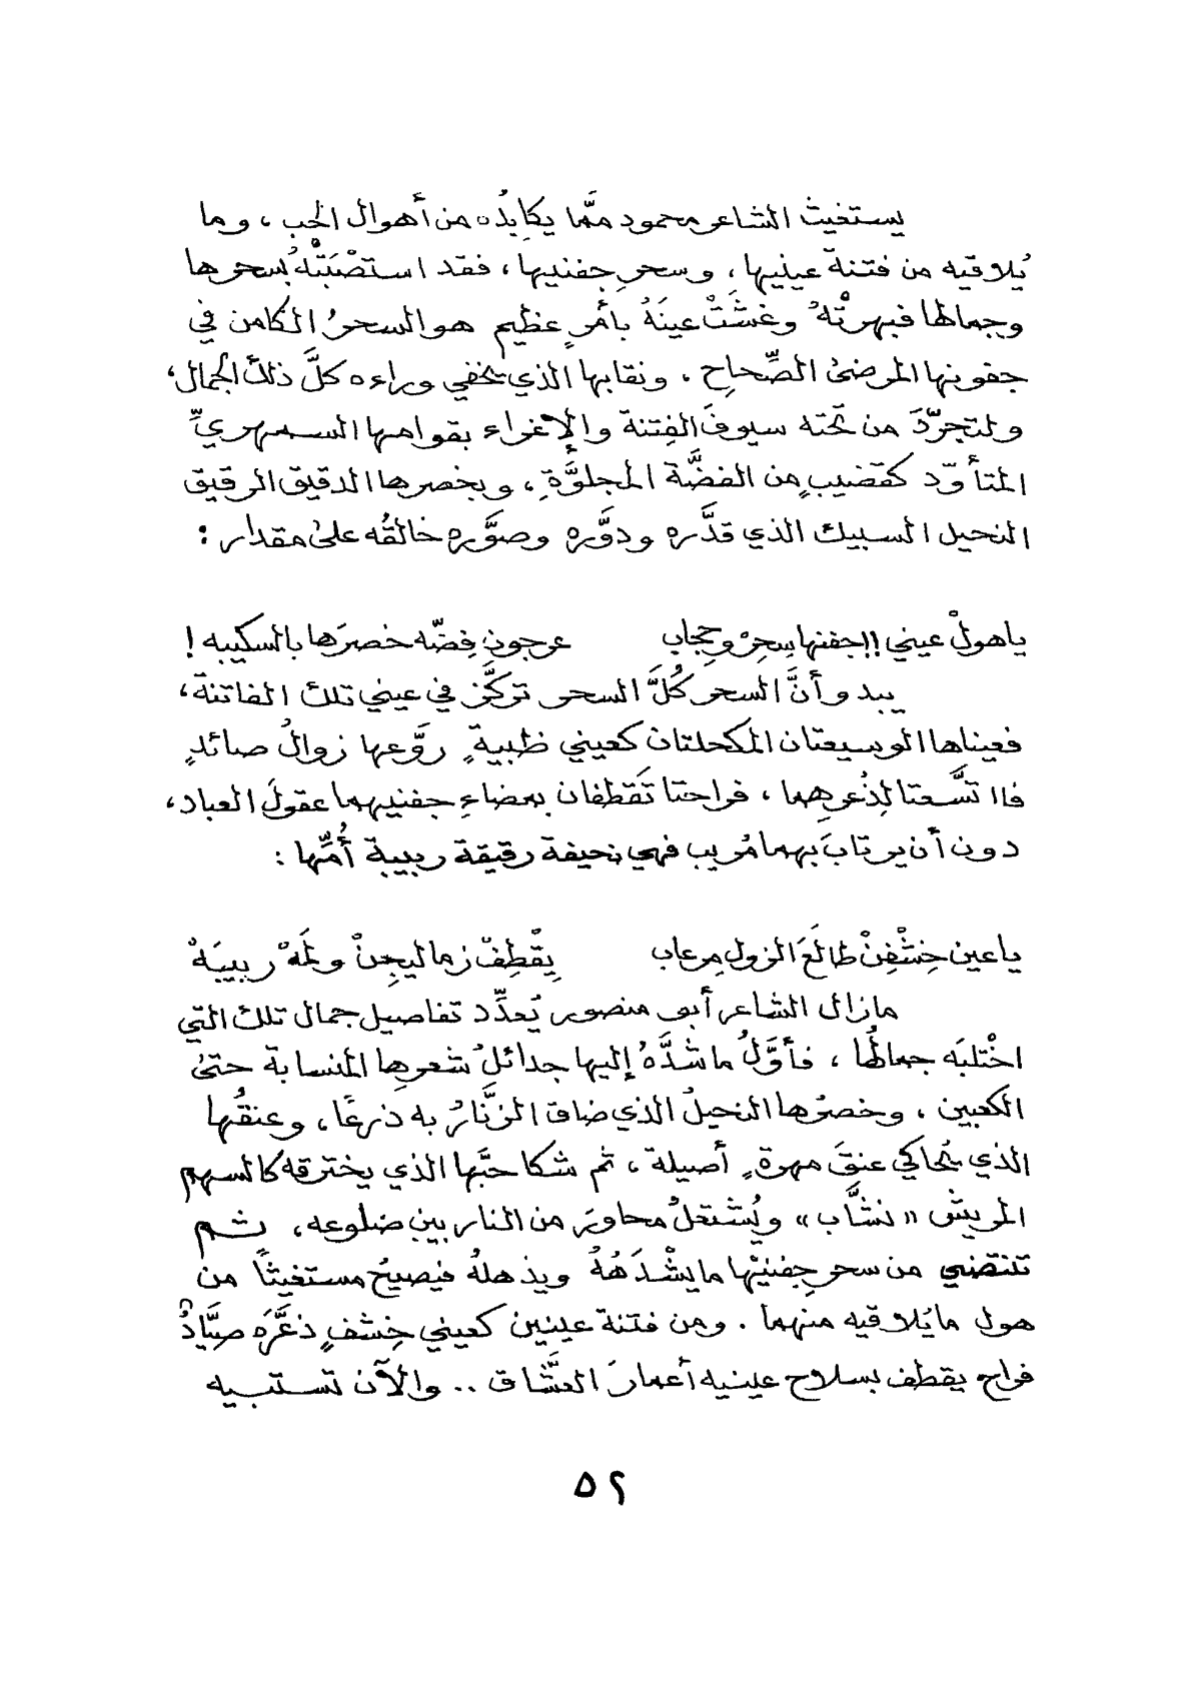 يستغيث الشاعر محمود ممَّا يكابدُه من أهوال الحب ، وما
يُلاقيه من فتنة عينيها ، وسحرِ جفنيها ، فقد استصْبَتْهُ بسحرها
وجمالها فبهرتْهُ وغشَّتْ عينَهُ بأمرٍ عظيم هو السحرُ الكامن في
جفونها المرضىٰ الصِّحاحِ ، ونقابها الذي تخفي وراءه كلَّ ذلك الجمال ،
ولتجرّدَ من تحته سيوفَ الفِتنة والإغراء بقوامها السمهريِّ
المتأوّد كقضيبٍ من الفضَّة المجلوَّةِ ، وبخصرها الدقيق الرقيق
النحيل السبيك الذي قدَّره ودوَّره وصوَّره خالقُه علىٰ مقدار :
ياهولْ عيني !! جفنها سِحِرْ وحِجاب عرجونِ فِضّه خصرَها بالسكيبه !
يبدو أنَّ السحر كُلَّ السحر تركَّز في عيني تلك الفاتنة ،
فعيناها الوسيعتان المكحلتان كعيني ظبيةٍ روَّعها زوالُ صائدٍ
فاتسَّعتا لِذُعرِهِما ، فراحتا تَقطفان بمضاءِ جفنيهما عقولَ العباد ،
دون أن يرتابَ بهما مُريب فهي نحيفة رقيقة ربيبة أُمِّها :
ياعين خِشْفِنْ طالَعَ الزول مِرعاب يِقْطِفْ زماليجِنْ ولَمَهْ ربيبَهْ
مازال الشاعر أبو منصور يُعدِّد تفاصيل جمال تلك التي
اخْتلبَه جمالُها ، فأوَّلُ ما شدَّهُ إليها جدائلُ شعرِها المنسابة حتىٰ
الكعبين ، وخصرُها النحيلُ الذي ضاق الزنَّارُ به ذرعًا ، وعنقُها
الذي يُحاكي عنقَ مهرةٍ أصيلة ، ثم شكا حبَّها الذي يخترقه كالسهم
المريش « نشَّاب » ويُشتعلُ محاورَ من النار بين ضلوعه ، ثم
تنتضي من سحر جِفنيْها ما يشْدَهُهُ ويذهلهُ فيصيحُ مستغيثاً من
هول ما يُلاقيه منهما . ومن فتنة عينين كعيني خِشفٍ ذعَّرَه صيَّادٌ
فراح يقطف بسلاح عينيه أعمارَ العشَّاق .. والآن تستبيه
٥٢